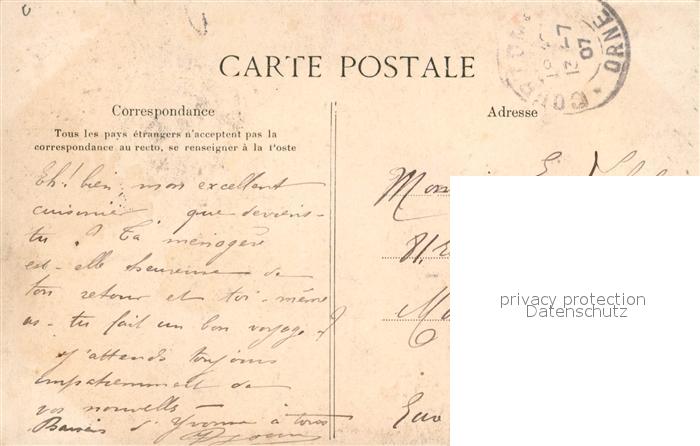 CARTE POSTALE
ORNE
12-7
07
Correspondance
Adresse
Tous les pays étrangers n'acceptent pas la
correspondance au recto, se renseigner à la Poste
Eh! bien, mon excellent
cuisinier, que deviens-
tu ? Ta ménagère
est-elle heureuse de
ton retour et toi-même
as-tu fait un bon voyage ?
J'attends toujours
impatiemment de
vos nouvelles
Baisers d'Yvonne à tous
81,
privacy protection
Datenschutz